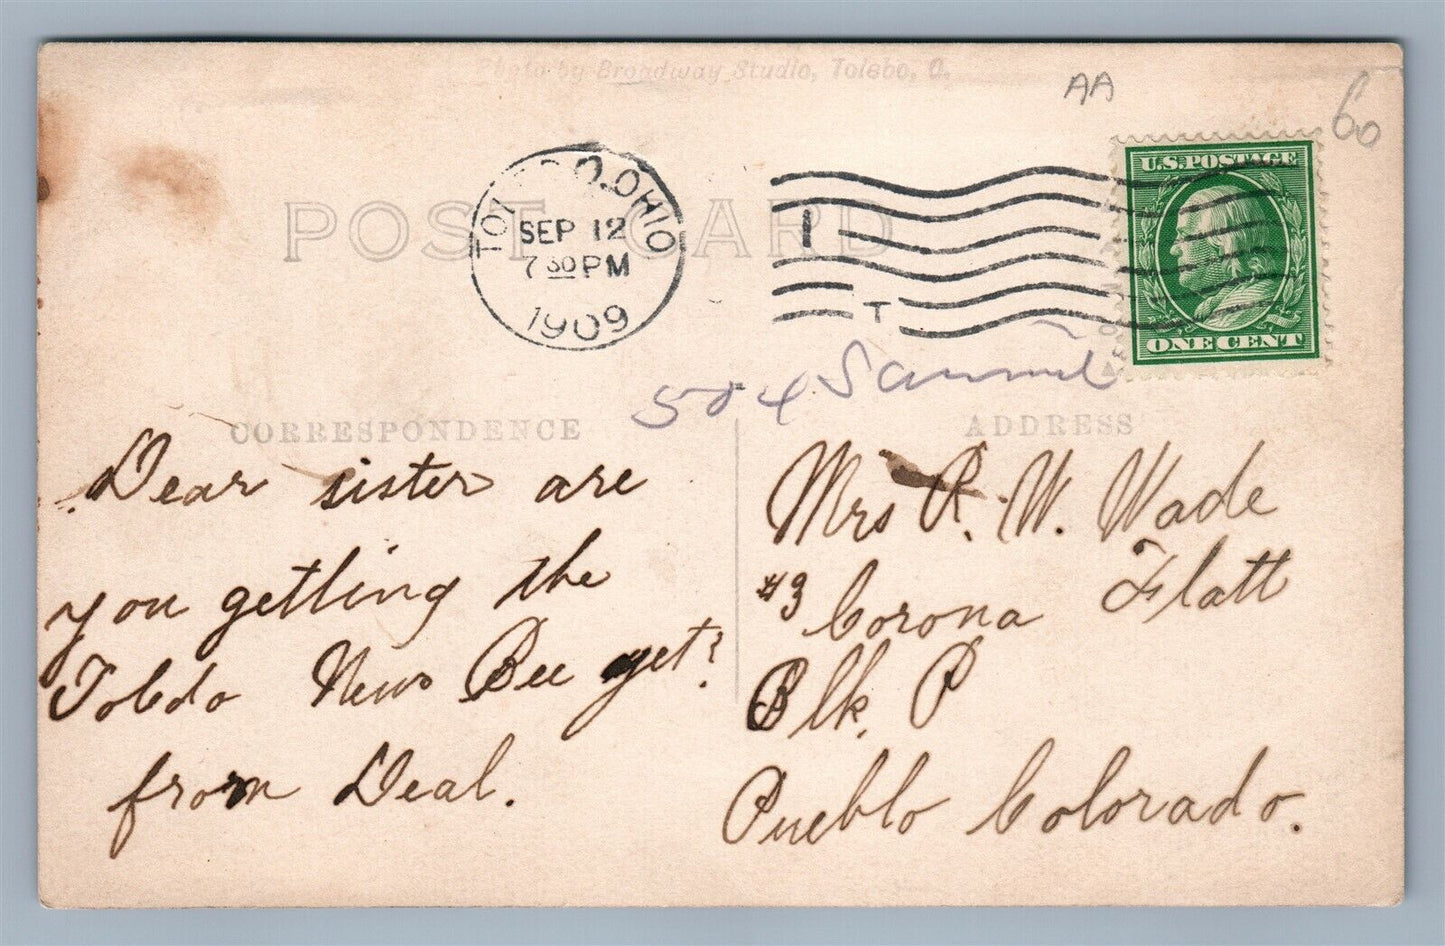 Photo by Broadway Studio, Toledo, O.
AA
60
POST CARD
TOLEDO, OHIO
SEP 12
7 30 PM
1909
1
T
U.S. POSTAGE
ONE CENT
504
CORRESPONDENCE
ADDRESS
Dear sister are
you getting the
Toledo News Bee yet?
from Deal.
Mrs R. W. Wade
#3 Corona Flatt
Blk. P
Pueblo Colorado.